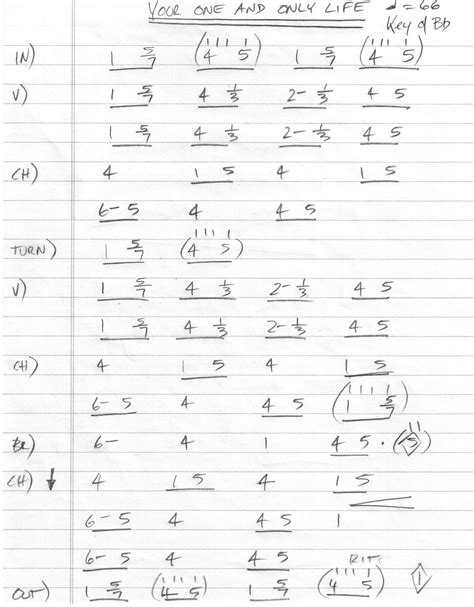 YOUR ONE AND ONLY LIFE ♩=66
Key of Bb
IN) 1 5/7 (4 5) 1 5/7 (4 5)
V) 1 5/7 4 1/3 2- 1/3 4 5
1 5/7 4 1/3 2- 1/3 4 5
CH) 4 1 5 4 1 5
6- 5 4 4 5
TURN) 1 5/7 (4 5)
V) 1 5/7 4 1/3 2- 1/3 4 5
1 5/7 4 1/3 2- 1/3 4 5
CH) 4 1 5 4 1 5
6- 5 4 4 5 (1 5/7)
BR) 6- 4 1 4 5 . (5)
CH) ↓ 4 1 5 4 1 5
6- 5 4 4 5 1
6- 5 4 4 5
RIT.
OUT) 1 5/7 (4 5) 1 5/7 (4 5) 1